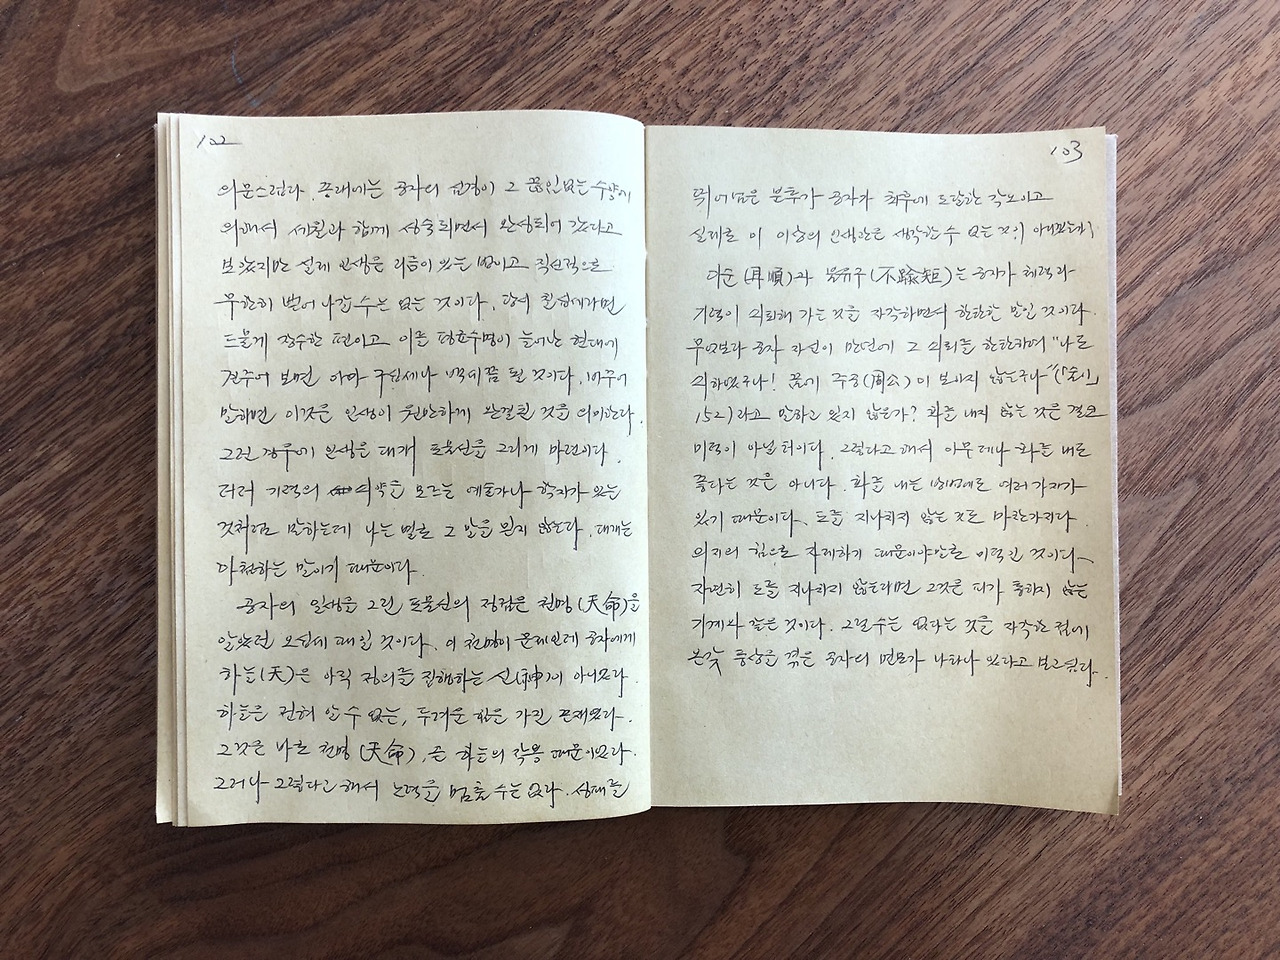 102
의문스럽다. 종래에는 공자의 심경이 그 끊임없는 수양에
의해서 세월과 함께 성숙되면서 완성되어 갔다고
보았지만 실제 인생은 리듬이 있는 법이고 직선적으로
무한히 뻗어 나갈 수는 없는 것이다. 당시 칠십세라면
드물게 장수한 편이고 이를 평균수명이 늘어난 현대에
견주어 보면 아마 구십세나 백세쯤 될 것이다. 바꾸어
말하면 이것은 인생이 원만하게 완결된 것을 의미한다.
그런 경우에 인생은 대개 포물선을 그리게 마련이다.
더러 기력의 쇠약을 모르는 예술가나 학자가 있는
것처럼 말하는데 나는 별로 그 말을 믿지 않는다. 대개는
아첨하는 말이기 때문이다.
공자의 일생을 그린 포물선의 정점은 천명(天命)을
알았던 오십세 때일 것이다. 이 천명이 문제인데 공자에게
하늘(天)은 아직 정의를 집행하는 신(神)이 아니었다.
하늘은 전혀 알 수 없는, 두려운 힘을 가진 존재였다.
그것은 바로 천명(天命), 곧 하늘의 작용 때문이었다.
그러나 그렇다고 해서 노력을 멈출 수는 없다. 성패를
103
뛰어넘은 분투가 공자가 최후에 도달한 각오이고
실제로 이 이상의 인생관은 생각할 수 없는 것이 아니겠는가!
이순(耳順)과 불유구(不踰矩)는 공자가 체력과
기력이 쇠퇴해 가는 것을 자각하면서 한탄한 말일 것이다.
무엇보다 공자 자신이 만년에 그 쇠퇴를 한탄하며 “나도
쇠하였구나! 꿈에 주공(周公)이 보이지 않는구나”(「술이」
152)라고 말하고 있지 않은가? 화를 내지 않는 것은 결코
미덕이 아닐 터이다. 그렇다고 해서 아무 데나 화를 내도
좋다는 것은 아니다. 화를 내는 방법에도 여러 가지가
있기 때문이다. 도를 지나치지 않는 것도 마찬가지다.
의지의 힘으로 자제하기 때문이야말로 미덕인 것이다.
자연히 도를 지나치지 않는다면 그것은 피가 통하지 않는
기계와 같은 것이다. 그럴 수는 없다는 것을 자각한 점에
온갖 풍상을 겪은 공자의 면모가 나타나 있다고 보고 싶다.